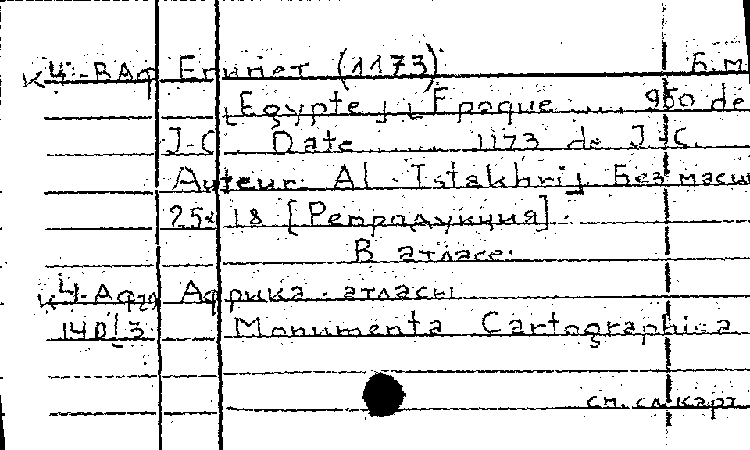 К4-ВАф Египет (1173) Б.м
[Egypte] [Epoque ..... 950 de
J-C. Date ....... 1173 de J-C.
Auteur. Al-Istakhri] Без масш
25x18 [Репродукция].
В атласе:
К4-Афр Африка - атласы
14D/3 Monumenta Cartographica
см. сл. карт